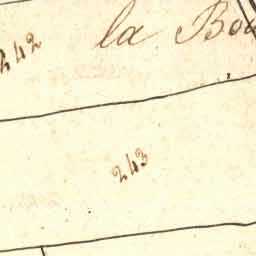 242
la Bou
243